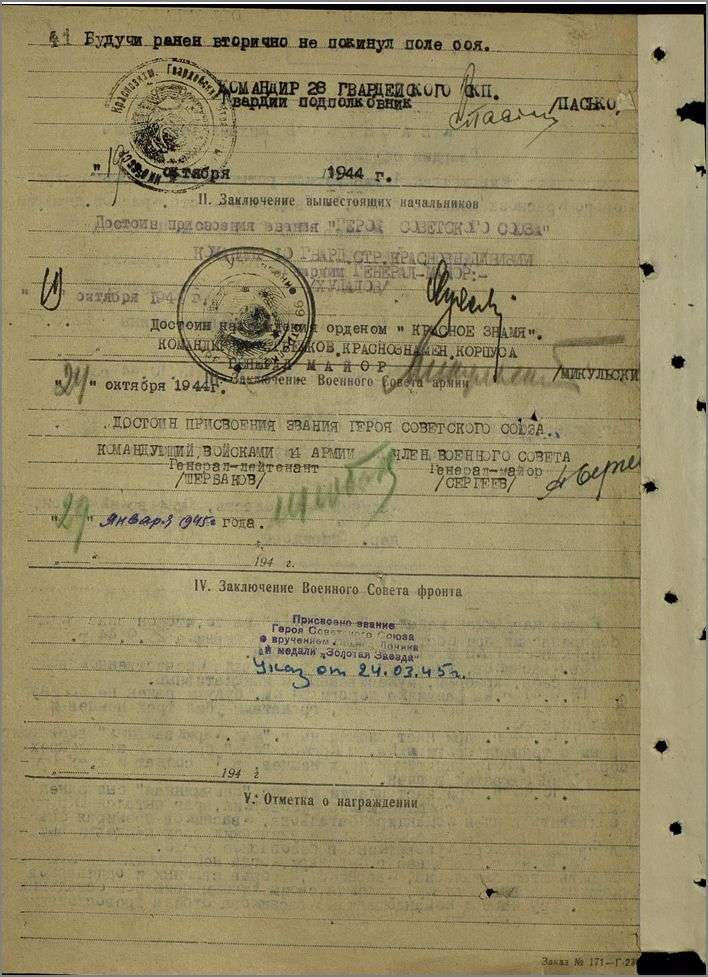 Будучи ранен вторично не покинул поле боя.
КОМАНДИР 28 ГВАРДЕЙСКОГО СКП.
Гвардии подполковник /ПАСЬКО.
"19 октября 1944 г.
II. Заключение вышестоящих начальников
Достоин присвоения звания "ГЕРОЯ СОВЕТСКОГО СОЮЗА"
ГВАРД.СТР.КРАСНОЗН.ДИВИЗИИ
ГЕНЕРАЛ-МАЙОР:-
/ХУДАЛОВ/
" октября 194 г.
Достоин награждения орденом " КРАСНОЕ ЗНАМЯ".
КРАСНОЗНАМЕН.КОРПУСА
ГЕНЕРАЛ МАЙОР /МИКУЛЬСКИ
"24" октября 1944г.
III. Заключение Военного Совета армии
ДОСТОИН ПРИСВОЕНИЯ ЗВАНИЯ ГЕРОЯ СОВЕТСКОГО СОЮЗА.
КОМАНДУЮЩИЙ ВОЙСКАМИ 14 АРМИИ ЧЛЕН ВОЕННОГО СОВЕТА
Генерал-лейтенант Генерал-майор
/ЩЕРБАКОВ/ /СЕРГЕЕВ/
"29" января 1945г года.
194 г.
IV. Заключение Военного Совета фронта
Присвоено звание
Героя Советского Союза
с вручением Ленина
и медали „Золотая Звезда"
Указ от 24.03.45г.
194 г
V. Отметка о награждении
Заказ № 171—Г